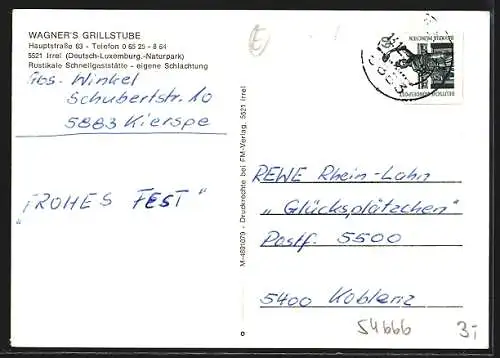 WAGNER'S GRILLSTUBE
Hauptstraße 63 - Telefon 0 65 25 - 8 64
5521 Irrel (Deutsch-Luxemburg.-Naturpark)
Rustikale Schnellgaststätte - eigene Schlachtung
Abs. Winkel
Schubertstr. 10
5883 Kierspe
"FROHES FEST"
M-4921079 - Druckrechte bei FM-Verlag, 5521 Irrel
5883
REWE Rhein-Lahn
"Glücksplätzchen"
Postf. 5500
5400 Koblenz
54666
3,-